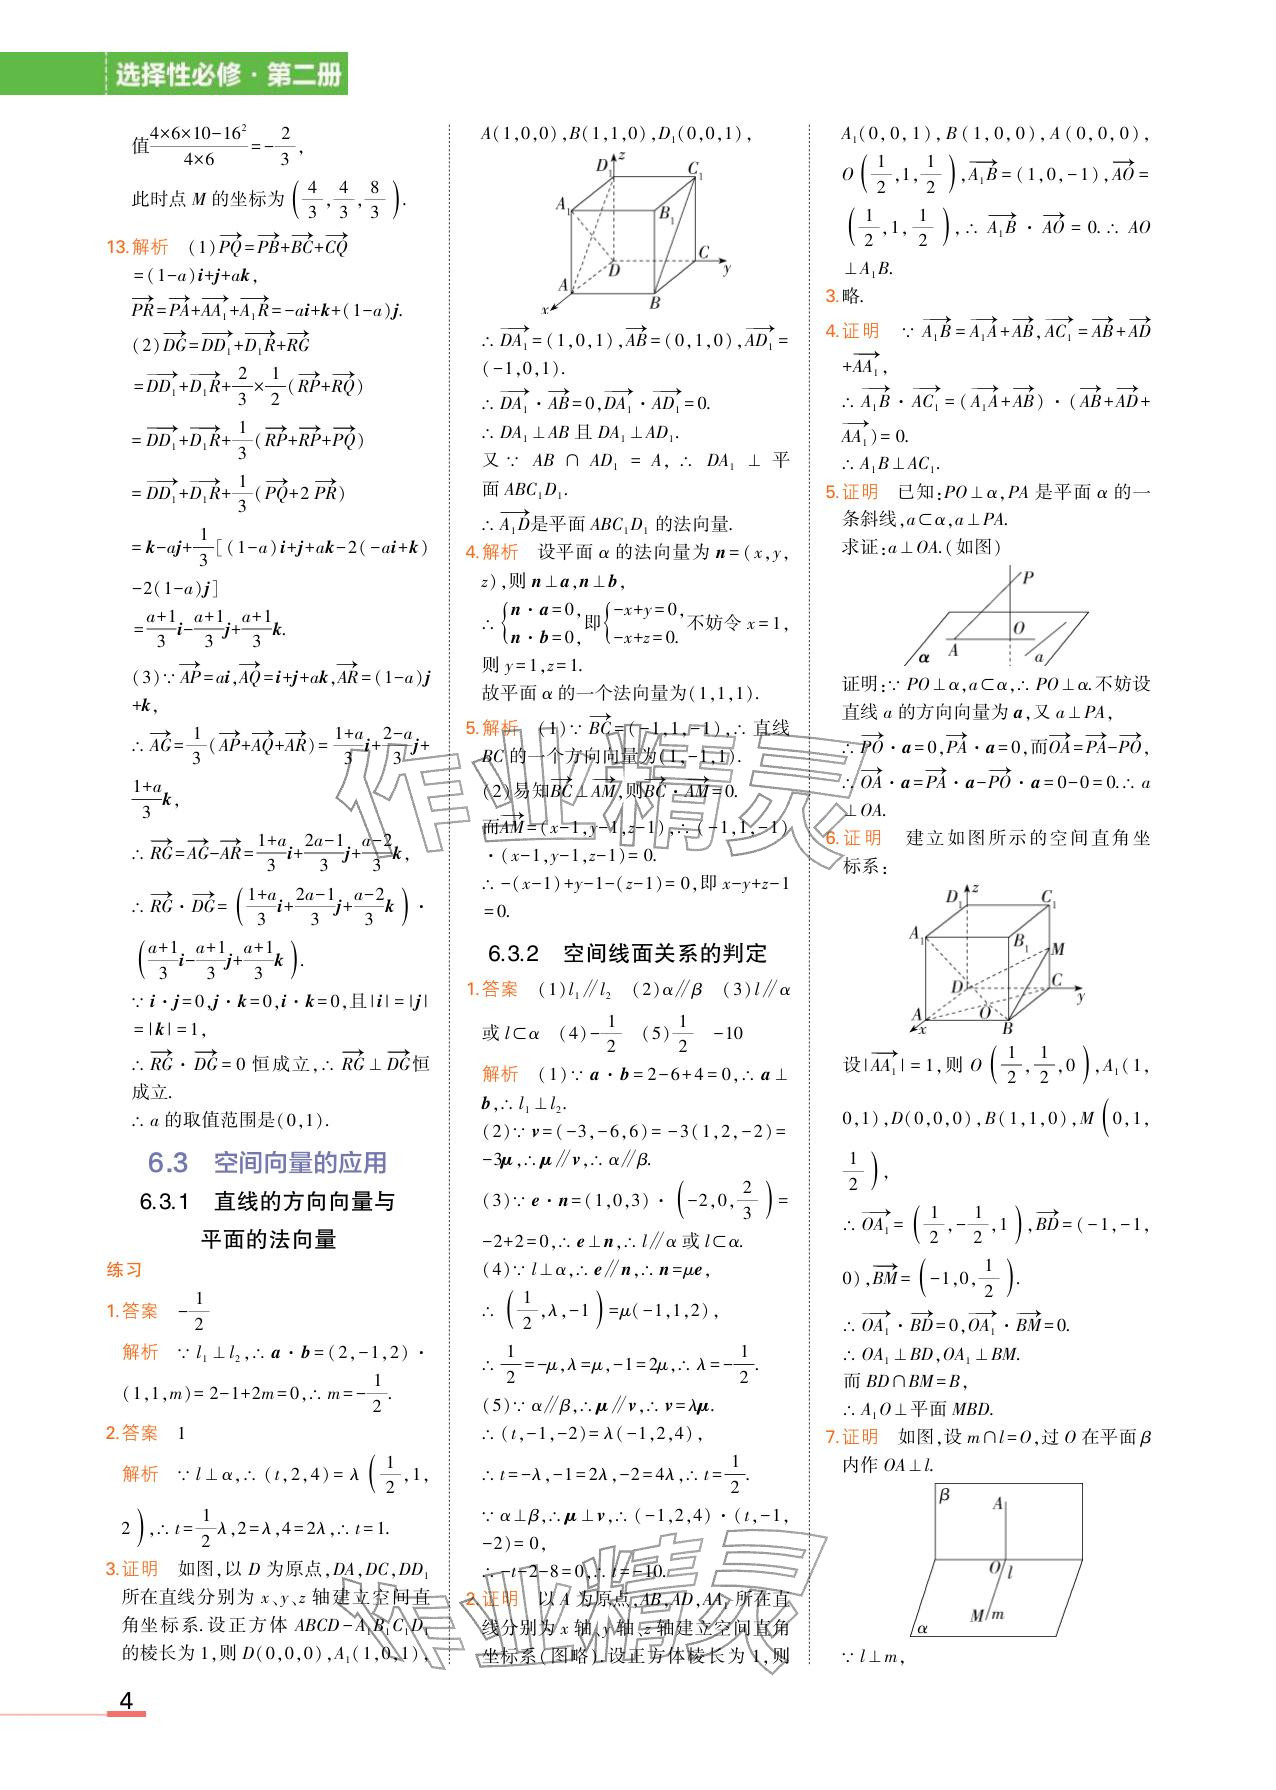 选择性必修·第二册
值(4×6×10-16²)/(4×6)=-2/3,
此时点 M 的坐标为(4/3,4/3,8/3).
13.解析 (1)PQ→=PB→+BC→+CQ→
=(1-a)i+j+ak,
PR→=PA→+AA₁→+A₁R→=-ai+k+(1-a)j.
(2)DG→=DD₁→+D₁R→+RG→
=DD₁→+D₁R→+2/3×1/2(RP→+RQ→)
=DD₁→+D₁R→+1/3(RP→+RP→+PQ→)
=DD₁→+D₁R→+1/3(PQ→+2PR→)
=k-aj+1/3[(1-a)i+j+ak-2(-ai+k)
-2(1-a)j]
=(a+1)/3 i-(a+1)/3 j+(a+1)/3 k.
(3)∵AP→=ai,AQ→=i+j+ak,AR→=(1-a)j
+k,
∴AG→=1/3(AP→+AQ→+AR→)=(1+a)/3 i+(2-a)/3 j+
(1+a)/3 k,
∴RG→=AG→-AR→=(1+a)/3 i+(2a-1)/3 j+(a-2)/3 k,
∴RG→·DG→=((1+a)/3 i+(2a-1)/3 j+(a-2)/3 k)·
((a+1)/3 i-(a+1)/3 j+(a+1)/3 k).
∵i·j=0,j·k=0,i·k=0,且|i|=|j|
=|k|=1,
∴RG→·DG→=0 恒成立,∴RG→⊥DG→恒
成立.
∴a 的取值范围是(0,1).
6.3 空间向量的应用
6.3.1 直线的方向向量与
平面的法向量
练习
1.答案 -1/2
解析 ∵l₁⊥l₂,∴a·b=(2,-1,2)·
(1,1,m)=2-1+2m=0,∴m=-1/2.
2.答案 1
解析 ∵l⊥α,∴(t,2,4)=λ(1/2,1,
2),∴t=1/2λ,2=λ,4=2λ,∴t=1.
3.证明 如图,以 D 为原点,DA,DC,DD₁
所在直线分别为 x、y、z 轴建立空间直
角坐标系.设正方体 ABCD-A₁B₁C₁D₁
的棱长为 1,则 D(0,0,0),A₁(1,0,1),
A(1,0,0),B(1,1,0),D₁(0,0,1),
D₁ z C₁
A₁ B₁
D C y
A B
x
∴DA₁→=(1,0,1),AB→=(0,1,0),AD₁→=
(-1,0,1).
∴DA₁→·AB→=0,DA₁→·AD₁→=0.
∴DA₁⊥AB 且 DA₁⊥AD₁.
又∵AB∩AD₁=A,∴DA₁⊥平
面 ABC₁D₁.
∴A₁D→是平面 ABC₁D₁ 的法向量.
4.解析 设平面 α 的法向量为 n=(x,y,
z),则 n⊥a,n⊥b,
∴{n·a=0,n·b=0,即{-x+y=0,-x+z=0.不妨令 x=1,
则 y=1,z=1.
故平面 α 的一个法向量为(1,1,1).
5.解析 (1)∵BC→=(-1,1,-1),∴直线
BC 的一个方向向量为(1,-1,1).
(2)易知BC→⊥AM→,则BC→·AM→=0.
而AM→=(x-1,y-1,z-1),∴(-1,1,-1)
·(x-1,y-1,z-1)=0.
∴-(x-1)+y-1-(z-1)=0,即 x-y+z-1
=0.
6.3.2 空间线面关系的判定
1.答案 (1)l₁∥l₂ (2)α∥β (3)l∥α
或 l⊂α (4)-1/2 (5)1/2 -10
解析 (1)∵a·b=2-6+4=0,∴a⊥
b,∴l₁⊥l₂.
(2)∵v=(-3,-6,6)=-3(1,2,-2)=
-3μ,∴μ∥v,∴α∥β.
(3)∵e·n=(1,0,3)·(-2,0,2/3)=
-2+2=0,∴e⊥n,∴l∥α 或 l⊂α.
(4)∵l⊥α,∴e∥n,∴n=μe,
∴(1/2,λ,-1)=μ(-1,1,2),
∴1/2=-μ,λ=μ,-1=2μ,∴λ=-1/2.
(5)∵α∥β,∴μ∥v,∴v=λμ.
∴(t,-1,-2)=λ(-1,2,4),
∴t=-λ,-1=2λ,-2=4λ,∴t=1/2.
∵α⊥β,∴μ⊥v,∴(-1,2,4)·(t,-1,
-2)=0,
∴-t-2-8=0,∴t=-10.
2.证明 以 A 为原点,AB,AD,AA₁ 所在直
线分别为 x 轴、y 轴、z 轴建立空间直角
坐标系(图略).设正方体棱长为 1,则
A₁(0,0,1),B(1,0,0),A(0,0,0),
O(1/2,1,1/2),A₁B→=(1,0,-1),AO→=
(1/2,1,1/2),∴A₁B→·AO→=0.∴AO
⊥A₁B.
3.略.
4.证明 ∵A₁B→=A₁A→+AB→,AC₁→=AB→+AD→
+AA₁→,
∴A₁B→·AC₁→=(A₁A→+AB→)·(AB→+AD→+
AA₁→)=0.
∴A₁B⊥AC₁.
5.证明 已知:PO⊥α,PA 是平面 α 的一
条斜线,a⊂α,a⊥PA.
求证:a⊥OA.(如图)
P
O
A
α a
证明:∵PO⊥α,a⊂α,∴PO⊥α.不妨设
直线 a 的方向向量为 a,又 a⊥PA,
∴PO→·a=0,PA→·a=0,而OA→=PA→-PO→,
∴OA→·a=PA→·a-PO→·a=0-0=0.∴a
⊥OA.
6.证明 建立如图所示的空间直角坐
标系:
D₁ z C₁
A₁ B₁ M
D C y
A O
x B
设|AA₁→|=1,则 O(1/2,1/2,0),A₁(1,
0,1),D(0,0,0),B(1,1,0),M(0,1,
1/2),
∴OA₁→=(1/2,-1/2,1),BD→=(-1,-1,
0),BM→=(-1,0,1/2).
∴OA₁→·BD→=0,OA₁→·BM→=0.
∴OA₁⊥BD,OA₁⊥BM.
而 BD∩BM=B,
∴A₁O⊥平面 MBD.
7.证明 如图,设 m∩l=O,过 O 在平面 β
内作 OA⊥l.
β A
O l
M m
α
∵l⊥m,
作业精灵
作业精灵
4